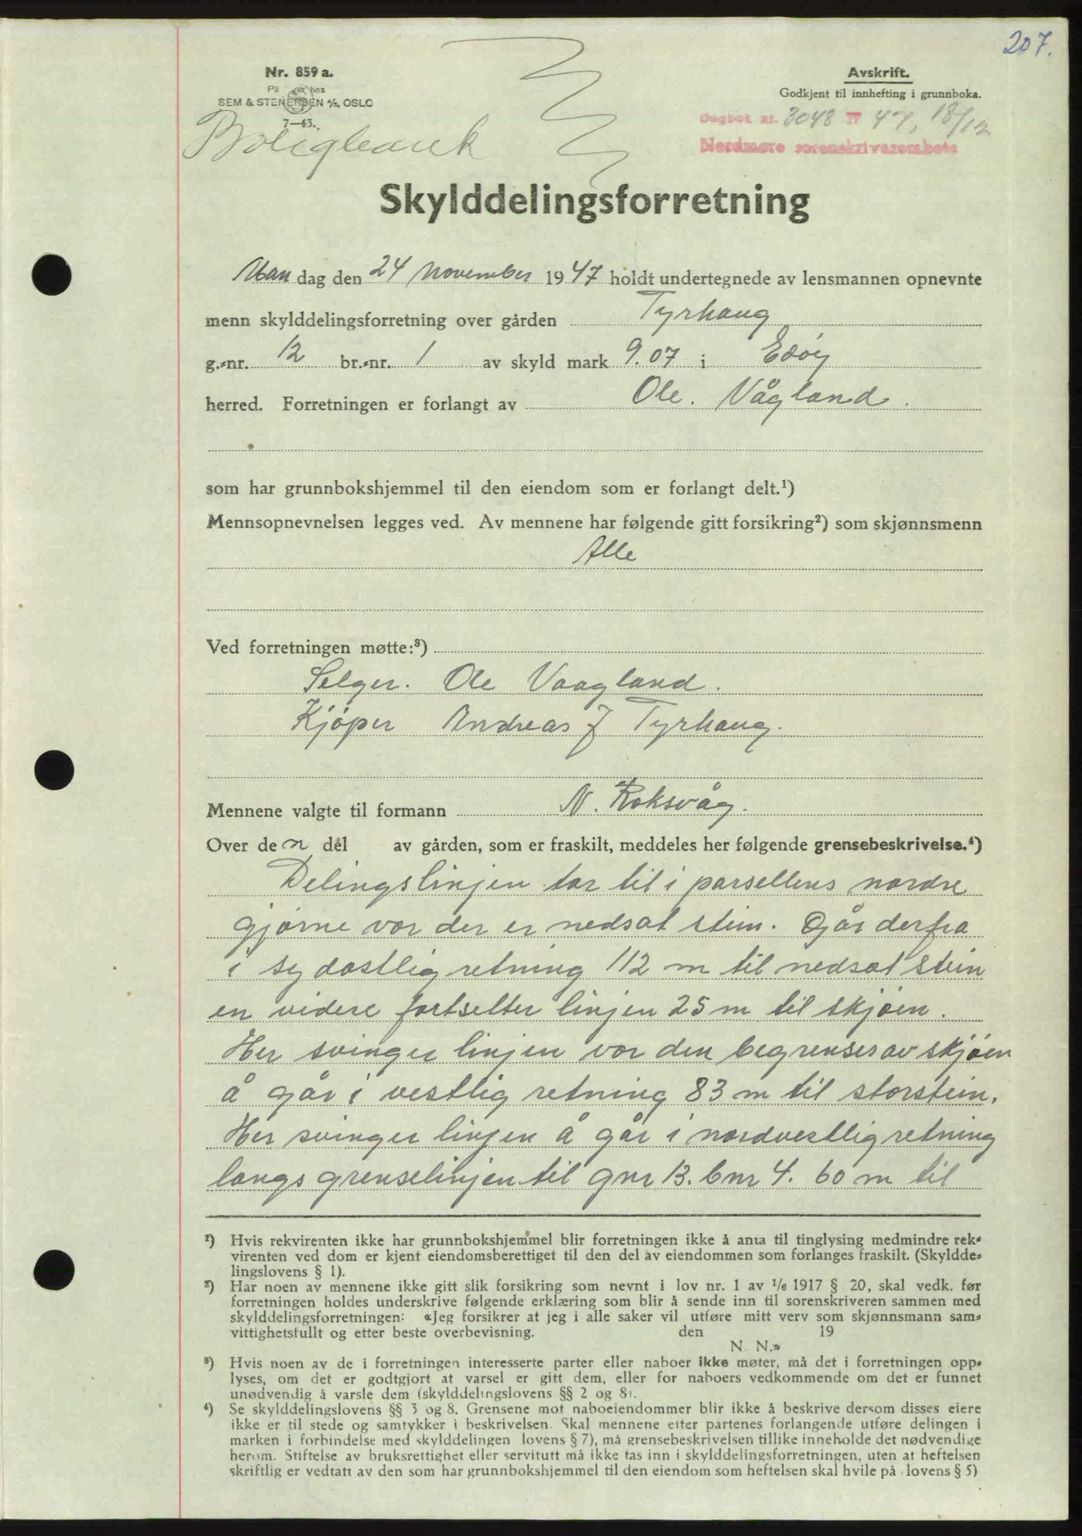 207.
Nr. 859 a.
På lager hos
SEM & STENERSEN A/S, OSLO
7—43.
Avskrift.
Godkjent til innhefting i grunnboka.
Dagbok nr. 3048 19 47, 18/12
Nordmøre sorenskriverembete
Boligbank
Skylddelingsforretning
Man dag den 24 november 1947 holdt undertegnede av lensmannen opnevnte
menn skylddelingsforretning over gården Tyrhaug
g.-nr. 12 br.-nr. 1 av skyld mark 9.07 i Edöy
herred. Forretningen er forlangt av Ole. Vågland.
som har grunnbokshjemmel til den eiendom som er forlangt delt.¹)
Mennsopnevnelsen legges ved. Av mennene har følgende gitt forsikring²) som skjønnsmenn
Alle
Ved forretningen møtte:³)
Selger. Ole Vaagland.
Kjöper Andreas J Tyrhaug.
Mennene valgte til formann N. Roksvåg.
Over den del av gården, som er fraskilt, meddeles her følgende grensebeskrivelse.⁴)
Delingslinjen tar til i parsellens nordre
gjörne vor der er nedsat stein. Går derfra
i sydöstlig retning 112 m til nedsat stein
en videre fortsetter linjen 25 m til skjöen.
Her svinger linjen vor den begrenses av skjöen
å går i vestlig retning 83 m til storstein.
Her svinger linjen å går i nordvestlig retning
langs grenselinjen til gnr 13. bnr 4. 60 m til
¹) Hvis rekvirenten ikke har grunnbokshjemmel blir forretningen ikke å anta til tinglysing medmindre rek-
virenten ved dom er kjent eiendomsberettiget til den del av eiendommen som forlanges fraskilt. (Skyldde-
lingslovens § 1).
²) Har noen av mennene ikke gitt slik forsikring som nevnt i lov nr. 1 av 1/6 1917 § 20, skal vedk. før
forretningen holdes underskrive følgende erklæring som blir å sende inn til sorenskriveren sammen med
skylddelingsforretningen: «Jeg forsikrer at jeg i alle saker vil utføre mitt verv som skjønnsmann sam-
vittighetsfullt og etter beste overbevisning. den 19
N. N.»
³) Hvis noen av de i forretningen interesserte parter eller naboer ikke møter, må det i forretningen opp-
lyses, om det er godtgjort at varsel er gitt dem, eller for naboers vedkommende om det er funnet
unødvendig å varsle dem (skylddelingslovens §§ 2 og 8).
⁴) Se skylddelingslovens §§ 3 og 8. Grensene mot naboeiendommer blir ikke å beskrive dersom disses eiere
ikke er til stede og samtykker i beskrivelsen. Skal mennene etter partenes forlangende utføre delingen i
marken i forbindelse med skylddelingen lovens § 7), må grensebeskrivelsen tillike inneholde det nødvendige
herom. Stiftelse av bruksrettighet eller servitutt må ikke tas inn i skylddelingsforretningen, uten at heftelsen
skriftlig er vedtatt av den som har grunnbokshjemmel til den eiendom som heftelsen skal hvile på (lovens § 5)